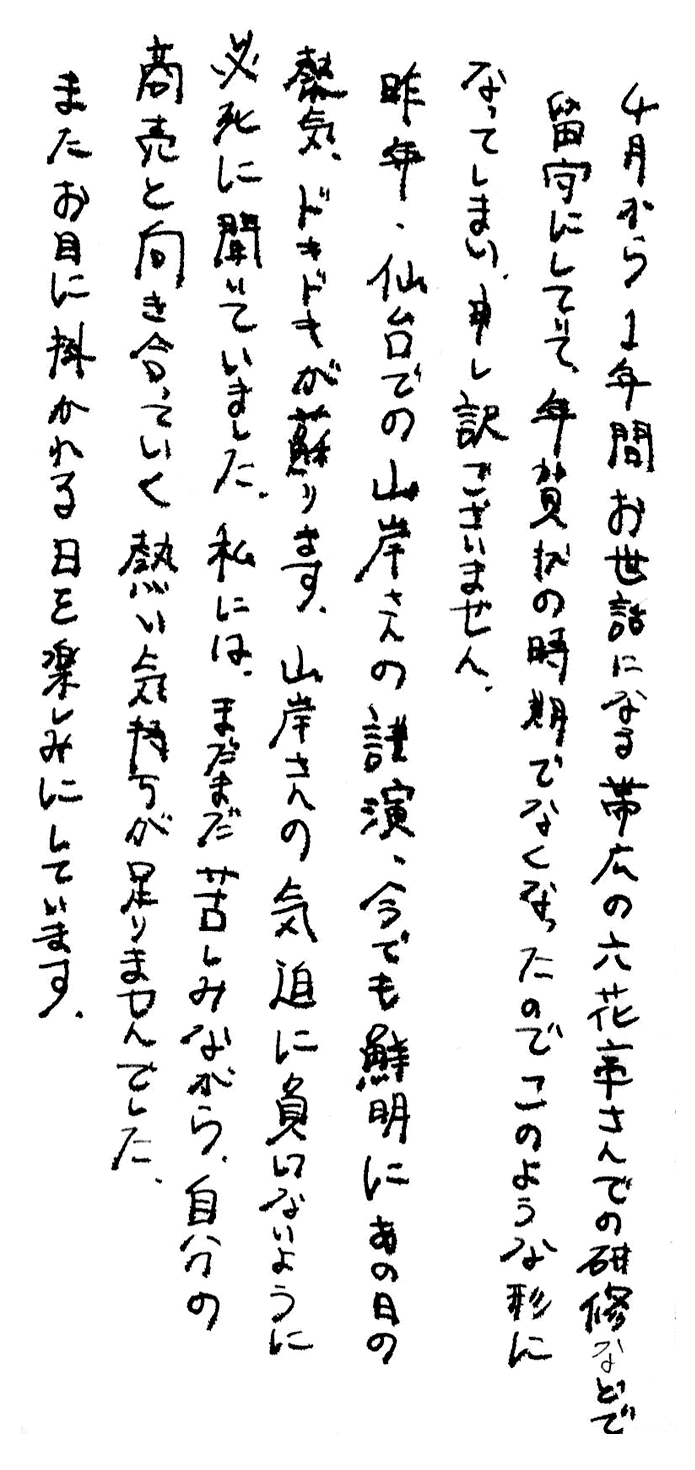 4月から1年間お世話になる帯広の六花亭さんでの研修などで
留守にしていて、年賀状の時期でなくなったのでこのような形に
なってしまい、申し訳ございません。
昨年、仙台での山岸さんの講演、今でも鮮明にあの日の
熱気、ドキドキが蘇ります。山岸さんの気迫に負けないように
必死に聞いていました。私には、まだまだ苦しみながら、自分の
商売と向き合っていく熱い気持ちが足りませんでした。
またお目に掛かれる日を楽しみにしています。